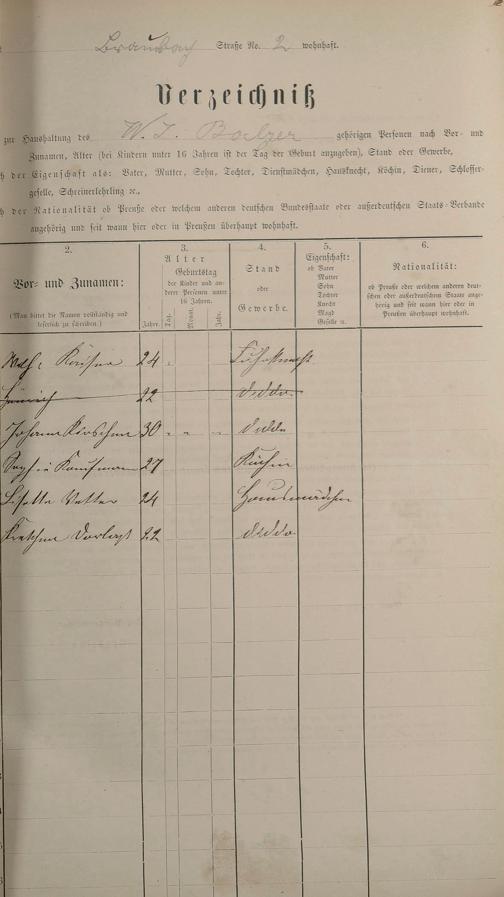 Braubach Straße No. 2 wohnhaft.
Verzeichniß
zur Haushaltung des W. J. Balzer gehörigen Personen nach Vor- und
Zunamen, Alter (bei Kindern unter 16 Jahren ist der Tag der Geburt anzugeben), Stand oder Gewerbe,
der Eigenschaft als: Vater, Mutter, Sohn, Tochter, Dienstmädchen, Hausknecht, Köchin, Diener, Schlosser-
geselle, Schreinerlehrling ꝛc.,
der Nationalität ob Preuße oder welchem anderen deutschen Bundesstaate oder außerdeutschen Staats-Verbande
angehörig und seit wann hier oder in Preußen überhaupt wohnhaft.
2. 3. 4. 5. 6.
Vor- und Zunamen:
(Man bittet die Namen vollständig und
leserlich zu schreiben.)
Alter
Geburtstag
der Kinder und an-
derer Personen unter
16 Jahren.
Jahre. Tag. Monat. Jahr.
Stand
oder
Gewerbe.
Eigenschaft:
ob Vater
Mutter
Sohn
Tochter
Knecht
Magd
Geselle u.
Nationalität:
ob Preuße oder welchem anderen deut-
schen oder außerdeutschen Staate ange-
hörig und seit wann hier oder in
Preußen überhaupt wohnhaft.
24 Fuhrknecht
Heinrich 22 ditto
Johann Kirschner 30 ditto
Sophie Kaufmann 27 Köchin
Lisette Vetter 24 Hausmädchen
22 ditto